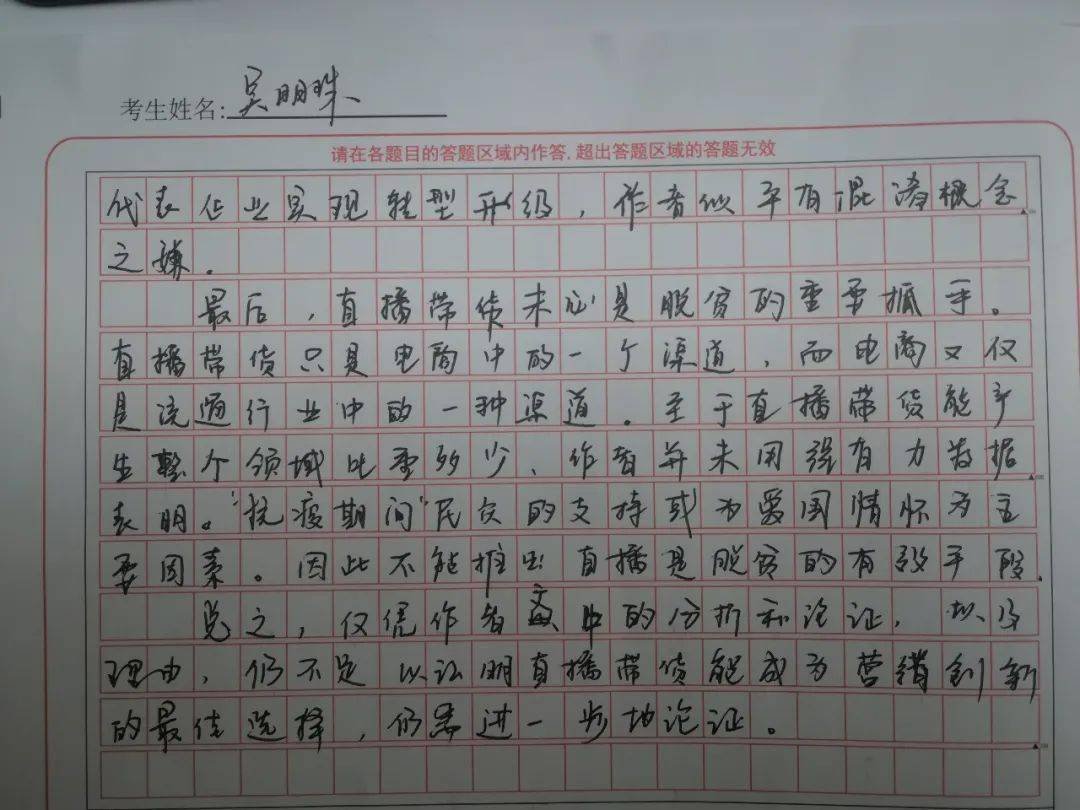 考生姓名:吴明珠
请在各题目的答题区域内作答,超出答题区域的答题无效
代表企业实现转型升级,作者似乎有混淆概念
之嫌.
最后,直播带货未必是脱贫的重要抓手。
直播带货只是电商中的一个渠道,而电商又仅
是流通行业中的一种渠道.至于直播带货能产
生整个领域比重的多少、作者并未用强有力数据
表明。"抗疫期间"民众的支持或为爱国情怀为主
要因素。因此不能推出直播是脱贫的有效手段.
总之,仅凭作者文中的分析和论证,以及
理由,仍不足以证明直播带货能成为营销创新
的最佳选择,仍需进一步地论证。